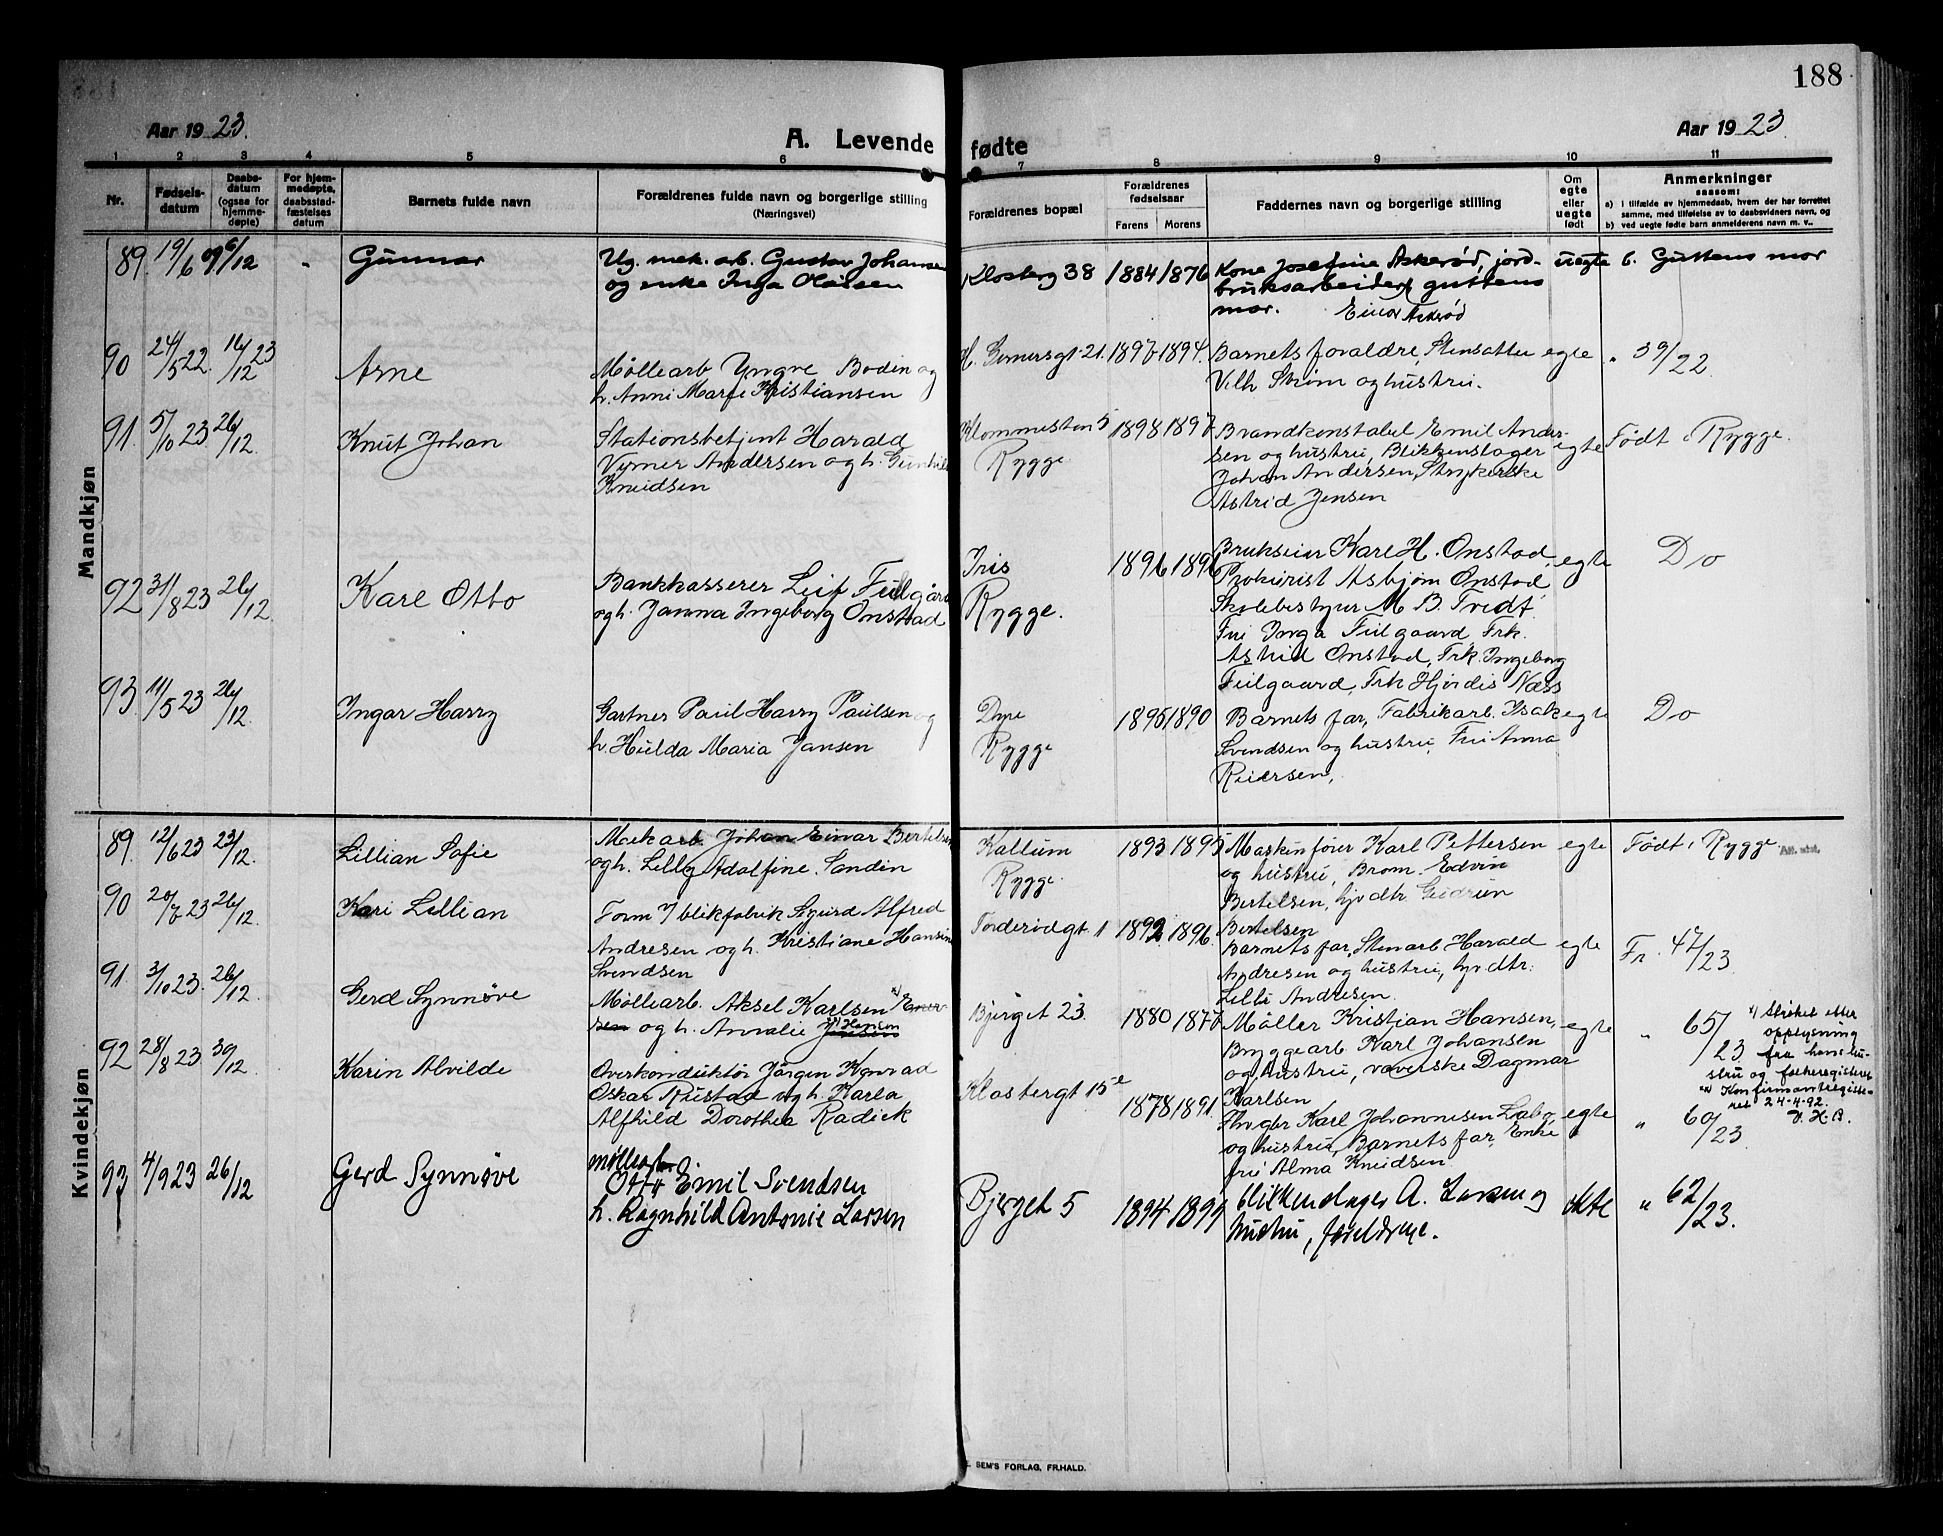 188
Aar 1923.
A. Levende fødte
Aar 1923
1 2 3 4 5 6 7 8 9 10 11
Nr.
Fødsels-
datum
Daabs-
datum
(ogsaa for
hjemme-
døpte)
For hjem-
medøpte,
daabsstad-
fæstelses
datum
Barnets fulde navn
Forældrenes fulde navn og borgerlige stilling
(Næringsvei)
Forældrenes bopæl
Forældrenes
fødselsaar
Farens Morens
Faddernes navn og borgerlige stilling
Om
egte
eller
uegte
født
Anmerkninger
saasom:
a) i tilfælde av hjemmedaab, hvem der har forrettet
samme, med tilføielse av to daabsvidners navn, og
b) ved uegte fødte barn anmelderens navn m. v..
Mandkjøn
89. 19/6 09 6/12 - Gunnar
Ug. mek. arb. Gustav Johansen
og enke Inga Olaisen
Klosterg 38 1884 1876
Kone Josefine Askerød, jord-
bruksarbeider guttens
mor. Einar Askerød
uegte b. Guttens mor
90 24/5 22. 16/12 23 Arne
Møllearb Yngve Bodin og
h. Anni Marie Kristiansen
H. Gernersgt. 21. 1897 1894.
Barnets foraldre, Stensatter
Vilh Strøm og hustru.
egte " 39/22
91. 5/10 23 26/12. Knut Johan
Stationsbetjent Harald
Verner Andersen og h. Gunhild
Knudsen
5
Rygge. 1898 1897
Brandkonstabel Emil Ander-
sen og hustru, Blikkenslager
Johan Andersen, Strykerske
Astrid Jensen
egte Født i Rygge.
92 31/8 23 26/12. Karl Otto
Bankkasserer Leif
og h. Janna Ingeborg Onstad
Iris
Rygge. 1896 1896
Brukseier Karl H. Onstad,
Prokurist Asbjørn Onstad
Skolebestyrer M. B. Tvedt
Fru Inga Fulgaard, Frk.
Astrid Onstad, Frk. Ingeborg
Fulgaard, Frk Hjørdis Næss
egte Do
93. 11/5 23 26/12. Ingar Harry
Gartner Paul Harry Paulsen og
h. Hulda Maria Jansen
Dyre
Rygge 1895 1890
Barnets far, Fabrikarb. Isak
Svendsen og hustru, Fru Anna
Reiersen,
egte Do
Kvindekjøn
89. 12/6 23 23/12. Lillian Sofie
Mekarb. Johan Einar Bertelsen
og h. Lilly Adolfine Sandin
Kallum
Rygge. 1893 1895
Maskinfører Karl Pettersen
og hustru, Brom. Edvin
Bertelsen, hjvdtr Gudrun
Bertelsen
egte Født i Rygge Att. utst.
90 20/7 23 26/12. Kari Lillian
Form. I blikfabrik Sigurd Alfred
Andresen og h. Kristiane Hansine
Svendsen
1 1892 1896.
Barnets far, Stenarb Harald
Andresen og hustru, hjvdtr:
Lilli Andresen.
egte Fr. 47/23
91. 3/10 23. 26/12. Gerd Synnøve
Møllearb. Aksel Karlsen x) Einar-
sen og h. Annalie x) Hansen Jensen
Bjerget 23. 1880 1877
Møller Kristian Hansen,
Bryggearb. Karl Johansen
og hustru, væverske Dagmar
Karlsen
egte " 65/23
x) Strøket etter
opplysning
fra hans hu-
stru og folkeregisteret
xx) Konfirmantregiste-
ret 24-4-92.
V. H. B.
92 28/8 23 30/12. Karin Alvilde
Overkonduktør Jørgen Konrad
Oskar Rustad og h. Karla
Alfhild Dorothea Radick
Klostergt 15 e 1878 1891.
Karl Johannesen
og hustru, Barnets far, Enke
fru Alma Knudsen
egte " 60/23
93 4/9 23 26/12 Gerd Synnøve
møllearb.
Otto Emil Svendsen
h. Ragnhild Antonie Larsen
Bjerget 5 1894 1899
blikkenslager A. Larsen og
hustru, foreldrene.
ekte " 62/23.
SEM'S FORLAG, FR.HALD.